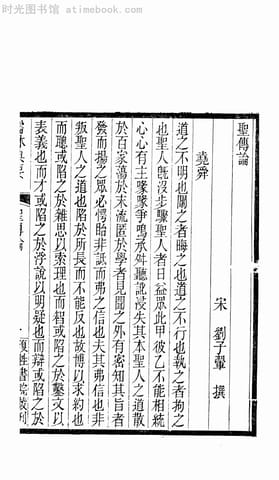 时光图书馆 atimebook.com
聖傳論
宋 劉子翬 撰
堯舜
道之不明也關之者晦之也道之不行也執之者拘之
也聖人旣沒步驟聖人者日益眾此甲彼乙不能相統
心心有主喙喙爭鳴承舛聽訛浸失其本聖人之道散
於百家蕩於末流匿於學者見聞之外有密知其旨者
發而揚之眾必愕眙非詆而弗之信也夫其弗信也非
叛聖人之道也陷於所長而不能反也故博以求約也
而聰或陷之於雜思以索理也而智或陷之於鑿文以
表義也而才或陷之於浮說以明疑也而辯或陷之於
聖傳論 一 復性書院叢刊